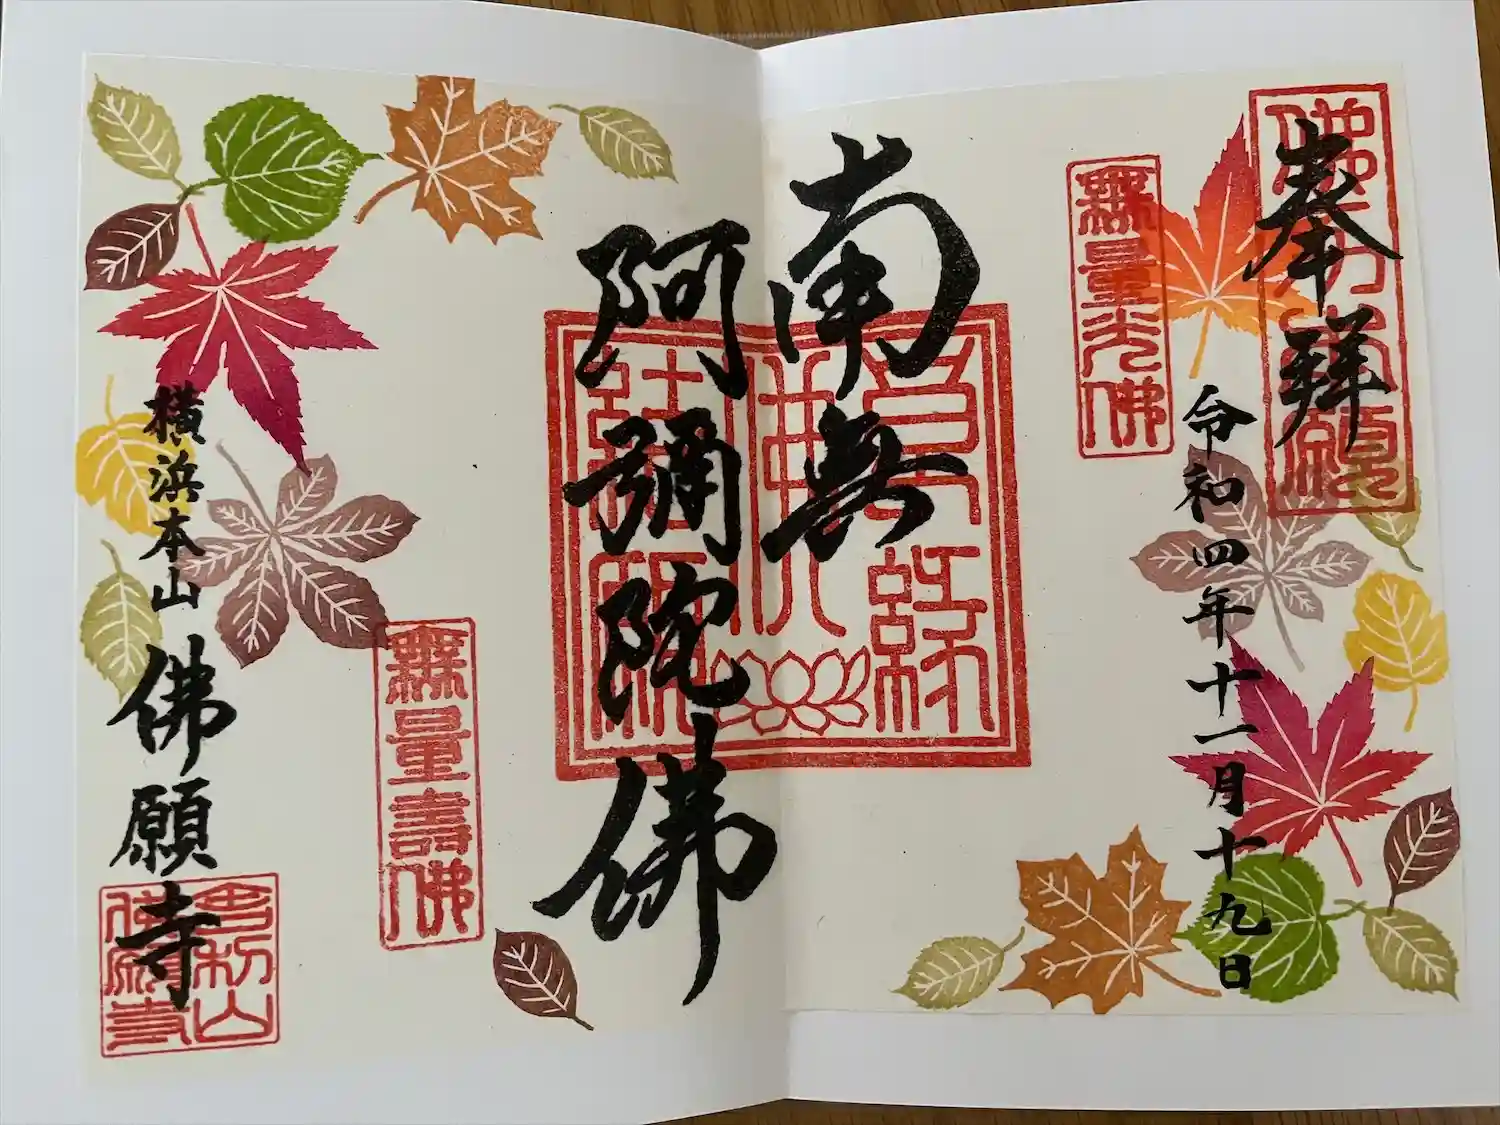 奉拝
令和四年十一月十九日
無量光佛
南無
阿彌陀佛
無量壽佛
横浜本山
佛願寺
舎利山
佛願寺